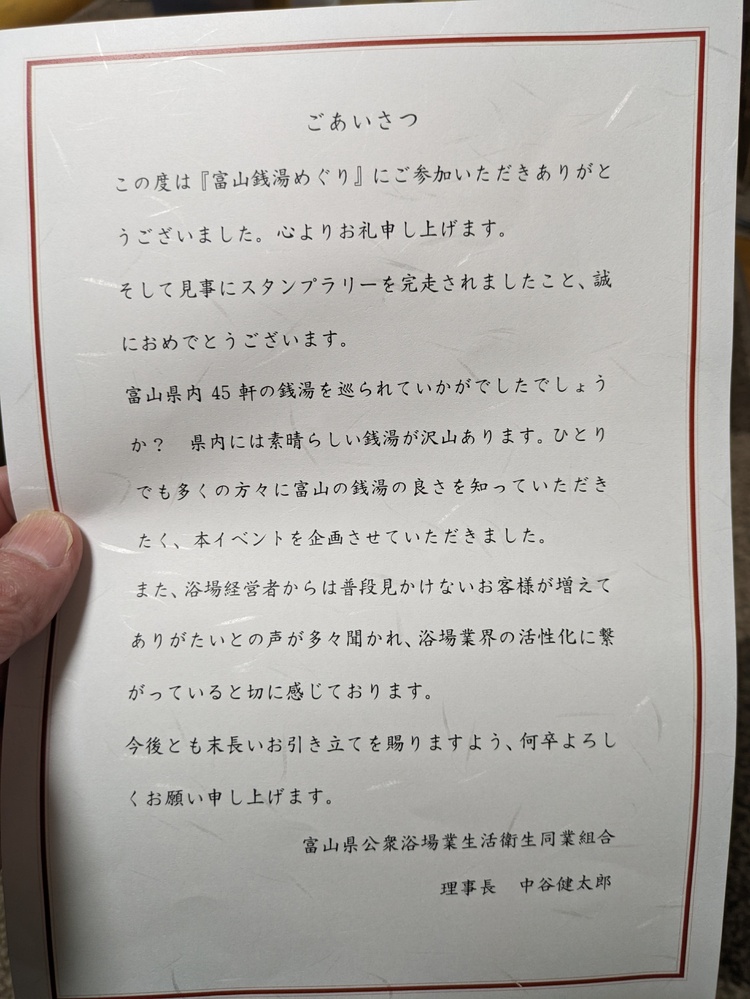 ごあいさつ
この度は『富山銭湯めぐり』にご参加いただきありがと
うございました。心よりお礼申し上げます。
そして見事にスタンプラリーを完走されましたこと、誠
におめでとうございます。
富山県内 45 軒の銭湯を巡られていかがでしたでしょう
か？　県内には素晴らしい銭湯が沢山あります。ひとり
でも多くの方々に富山の銭湯の良さを知っていただき
たく、本イベントを企画させていただきました。
また、浴場経営者からは普段見かけないお客様が増えて
ありがたいとの声が多々聞かれ、浴場業界の活性化に繋
がっていると切に感じております。
今後とも末長いお引き立てを賜りますよう、何卒よろし
くお願い申し上げます。
富山県公衆浴場業生活衛生同業組合
理事長　中谷健太郎